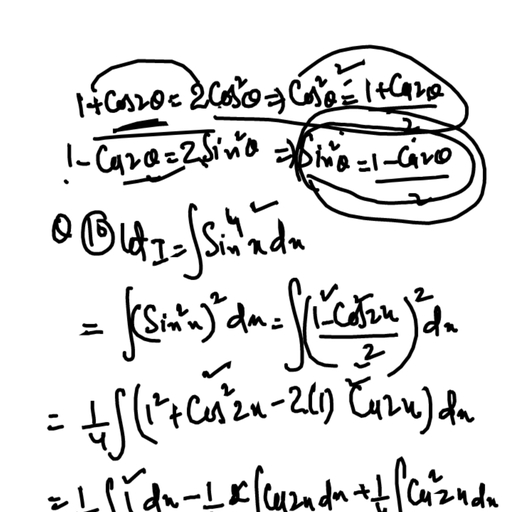 1+Cos2θ = 2Cos²θ ⇒ Cos²θ = (1+Cos2θ)/2
1-Cos2θ = 2Sin²θ ⇒ Sin²θ = (1-Cos2θ)/2
Q 10 let I = ∫Sin⁴x dx
= ∫(Sin²x)² dx = ∫((1-Cos2x)/2)² dx
= 1/4 ∫(1² + Cos²2x - 2(1) Cos2x) dx
= 1/4 ∫1 dx - 1/4 2 ∫Cos2x dx + 1/4 ∫Cos²2x dx